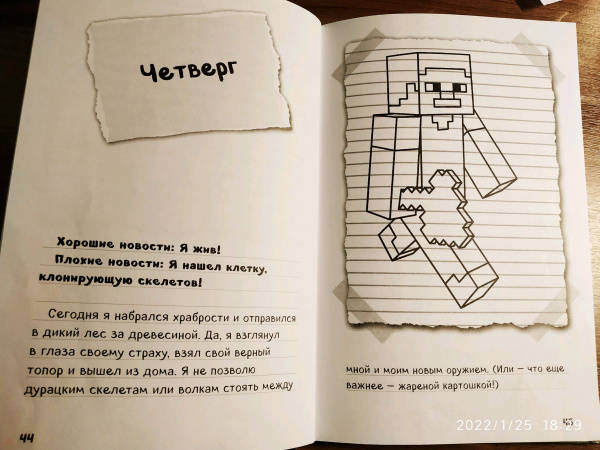 Четверг
Хорошие новости: Я жив!
Плохие новости: Я нашел клетку,
клонирующую скелетов!
Сегодня я набрался храбрости и отправился
в дикий лес за древесиной. Да, я взглянул
в глаза своему страху, взял свой верный
топор и вышел из дома. Я не позволю
дурацким скелетам или волкам стоять между
44
мной и моим новым оружием. (Или – что еще
важнее – жареной картошкой!)
45
2022/1/25 18:29